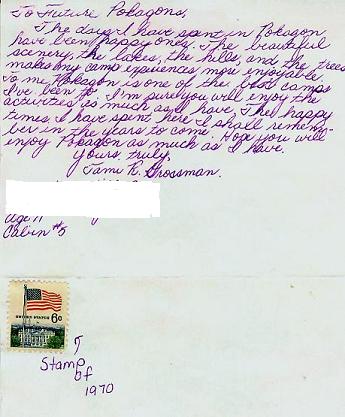 To Future Pokagons,
The days I have spent in Pokagon
have been happy ones. The beautiful
scenery, the lakes, the hills, and the trees
makes my camp experiences more enjoyable.
To me Pokagon is one of the best camps
I've been to. I'm sure you will enjoy the
activities as much as I have. The happy
times I have spent here I shall remem-
ber in the years to come. Hope you will
enjoy Pokagon as much as I have.
Yours truly,
Tami R. Grossman.
age 11
Cabin #5
UNITED STATES 6c
Stamp
of
1970